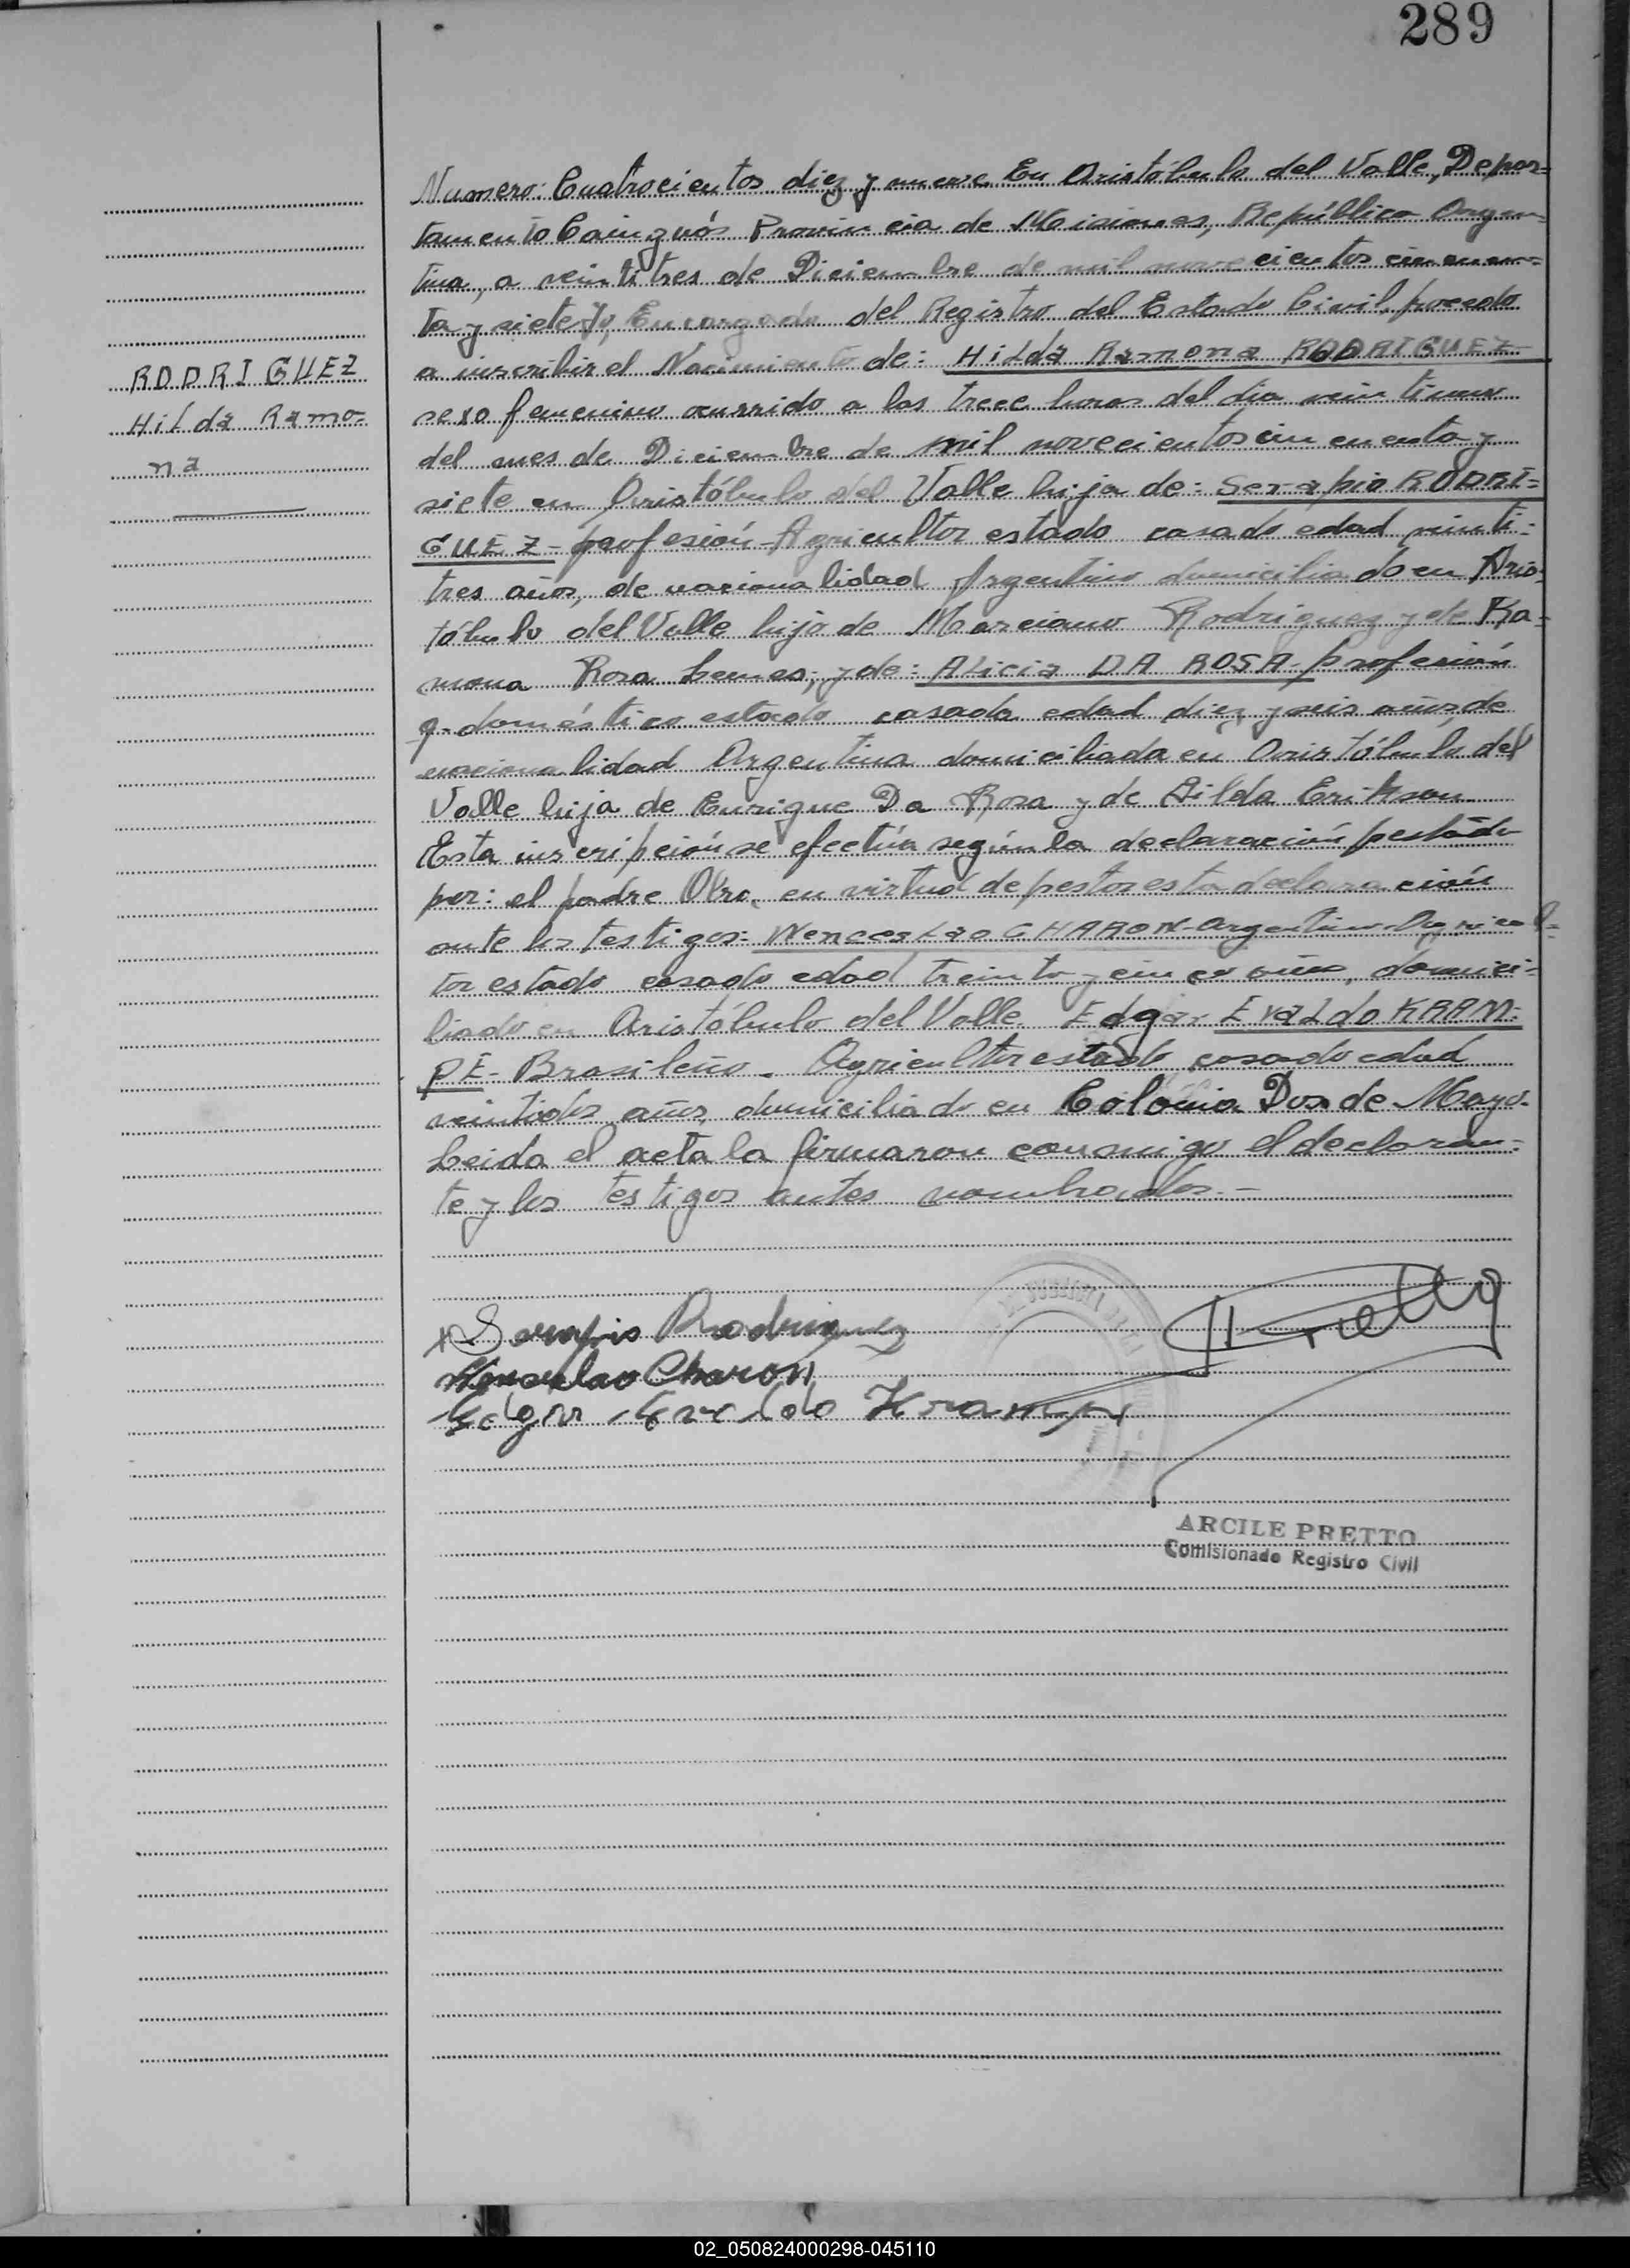 289
Numero: Cuatrocientos diez y nueve En Aristóbulo del Valle, Depar=
tamento Cainguás Provincia de Misiones, República Argen=
tina, a veintitres de Diciembre de mil novecientos cincuen=
ta y siete Yo, Encargado del Registro del Estado Civil, procedo
a inscribir el Nacimiento de: Hilda Ramona RODRIGUEZ
RODRIGUEZ
Hilda Ramo=
na
sexo femenino ocurrido a las trece horas del día
del mes de Diciembre de mil novecientos cincuenta y
siete en Aristóbulo del Valle hija de: Serapio RODRI=
GUEZ - profesión Agricultor estado casado edad veinti=
tres años, de nacionalidad Argentino domiciliado en Aris=
tóbulo del Valle hijo de Marciano Rodriguez y de Ra=
mona Rosa Lemes; y de: Alicia DA ROSA - profesión
q. domésticos estado casada edad diez y seis años, de
nacionalidad Argentina domiciliada en Aristóbulo del
Valle hija de Enrique Da Rosa y de Erikson
Esta inscripción se efectúa según la declaración
por: el padre en virtud de esta declaración
ante los testigos: Wenceslao CHARON - Argentino - Agricul=
tor estado casado edad treinta y cinco años, domici=
liado en Aristóbulo del Valle. Edgar Evaldo KRAM=
PE - Brasileño - Agricultor estado casado edad
veintidos años, domiciliado en Colónia Dos de Mayo.
Leida el acta la firmaron conmigo el declaran=
te y los testigos antes nombrados.-
Serapio Rodriguez
Wenceslao Charon
Edgar Evaldo Krampe
ARCILE PRETTO
Comisionado Registro Civil
02_050824000298-045110